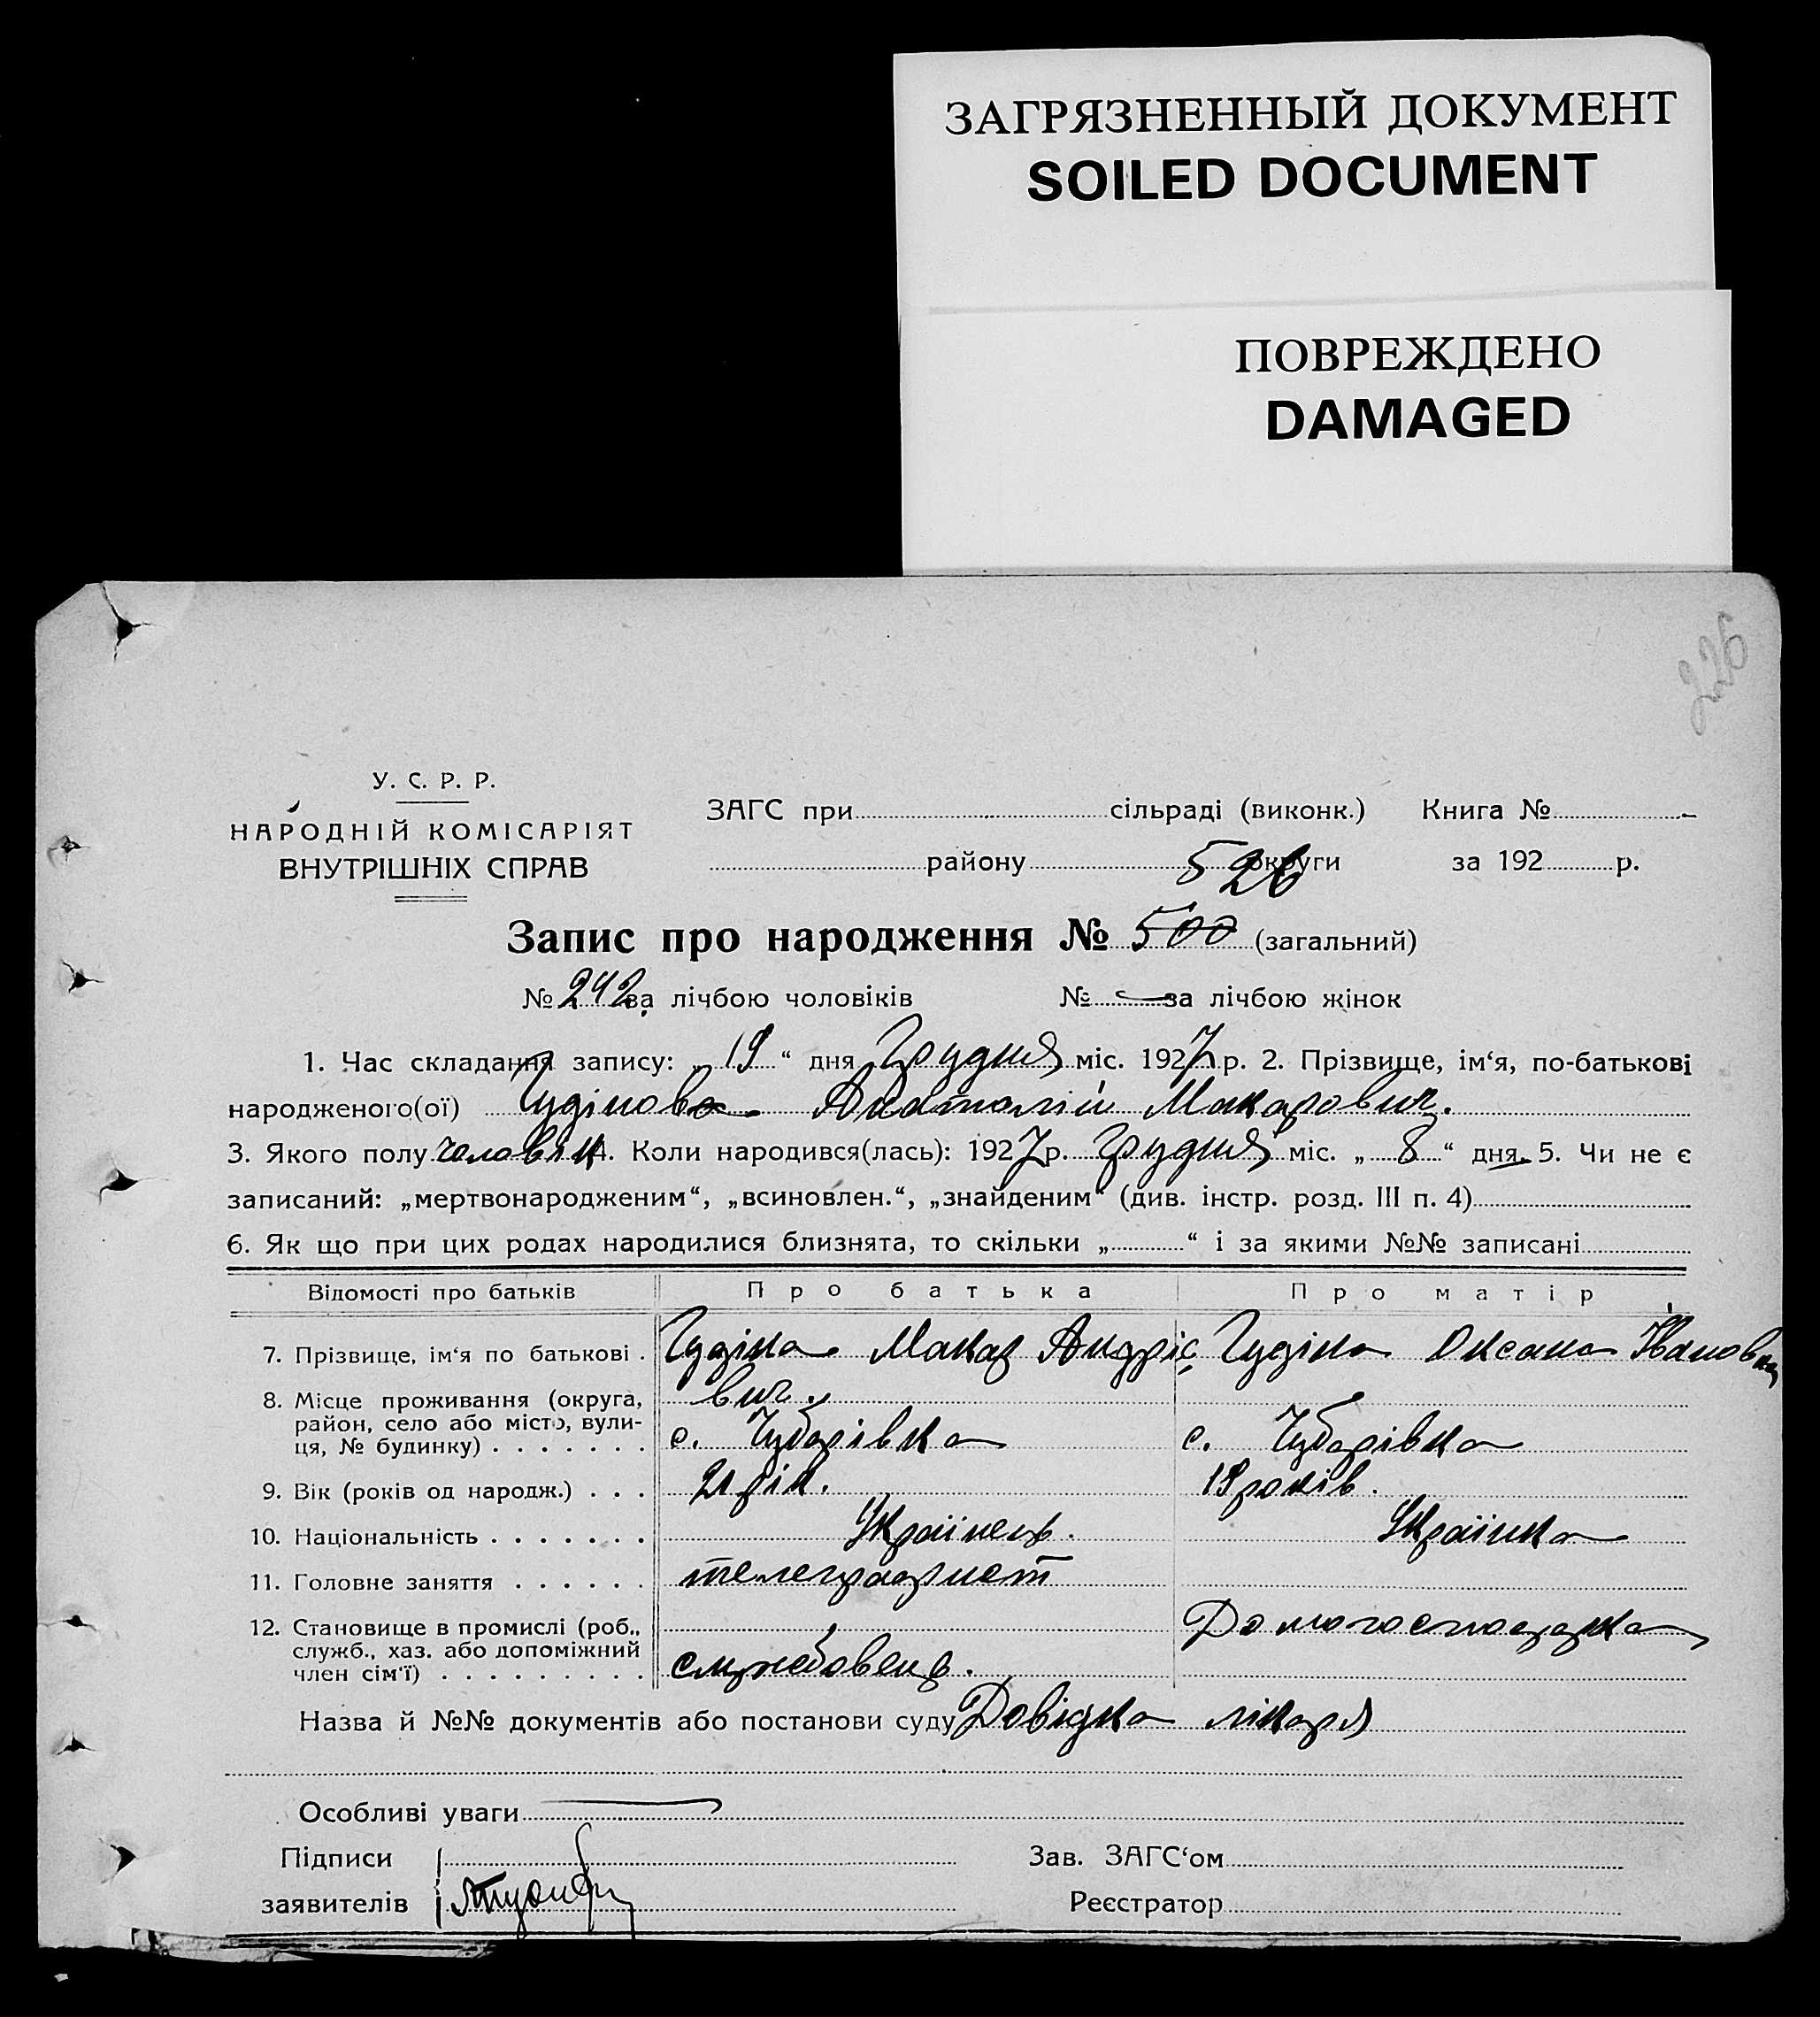 ЗАГРЯЗНЕННЫЙ ДОКУМЕНТ
SOILED DOCUMENT
ПОВРЕЖДЕНО
DAMAGED
226
У. С. Р. Р.
НАРОДНІЙ КОМІСАРІЯТ
ВНУТРІШНІХ СПРАВ
ЗАГС при сільраді (виконк.) Книга №
району округи за 192 р.
526
Запис про народження № 500 (загальний)
№ 242 за лічбою чоловіків № — за лічбою жінок
1. Час складання запису: „19“ дня Грудня міс. 1927 р. 2. Прізвище, ім‘я, по-батькові
народженого(ої) Анатолій Макарович.
3. Якого полу чоловік 4. Коли народився(лась): 1927 р. Грудня міс. „8“ дня. 5. Чи не є
записаний: „мертвонародженим“, „всиновлен.“, „знайденим“ (див. інстр. розд. III п. 4)
6. Як що при цих родах народилися близнята, то скільки „ “ і за якими №№ записані
Відомості про батьків Про батька Про матір
7. Прізвище, ім‘я по батькові . Гудіна Макар Андріє Гудіна Оксана Івановна
вич.
8. Місце проживання (округа,
район, село або місто, вули-
ця, № будинку) . . . . . . . с. Чубарівка с. Чубарівка
9. Вік (років од народж.) . . . 21 рік. 19 років.
10. Національність . . . . . . . Українець. Українка
11. Головне заняття . . . . . . телеграфист
12. Становище в промислі (роб.,
служб., хаз. або допоміжний
член сім‘ї) . . . . . . . . . службовець. Домогосподарка
Назва й №№ документів або постанови суду Довідка лікаря
Особливі уваги —
Підписи Зав. ЗАГС‘ом
заявителів Реєстратор